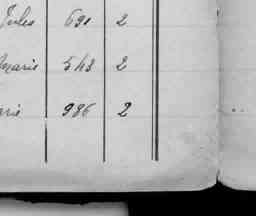 Jules 691 2
Marie 543 2
arie 986 2